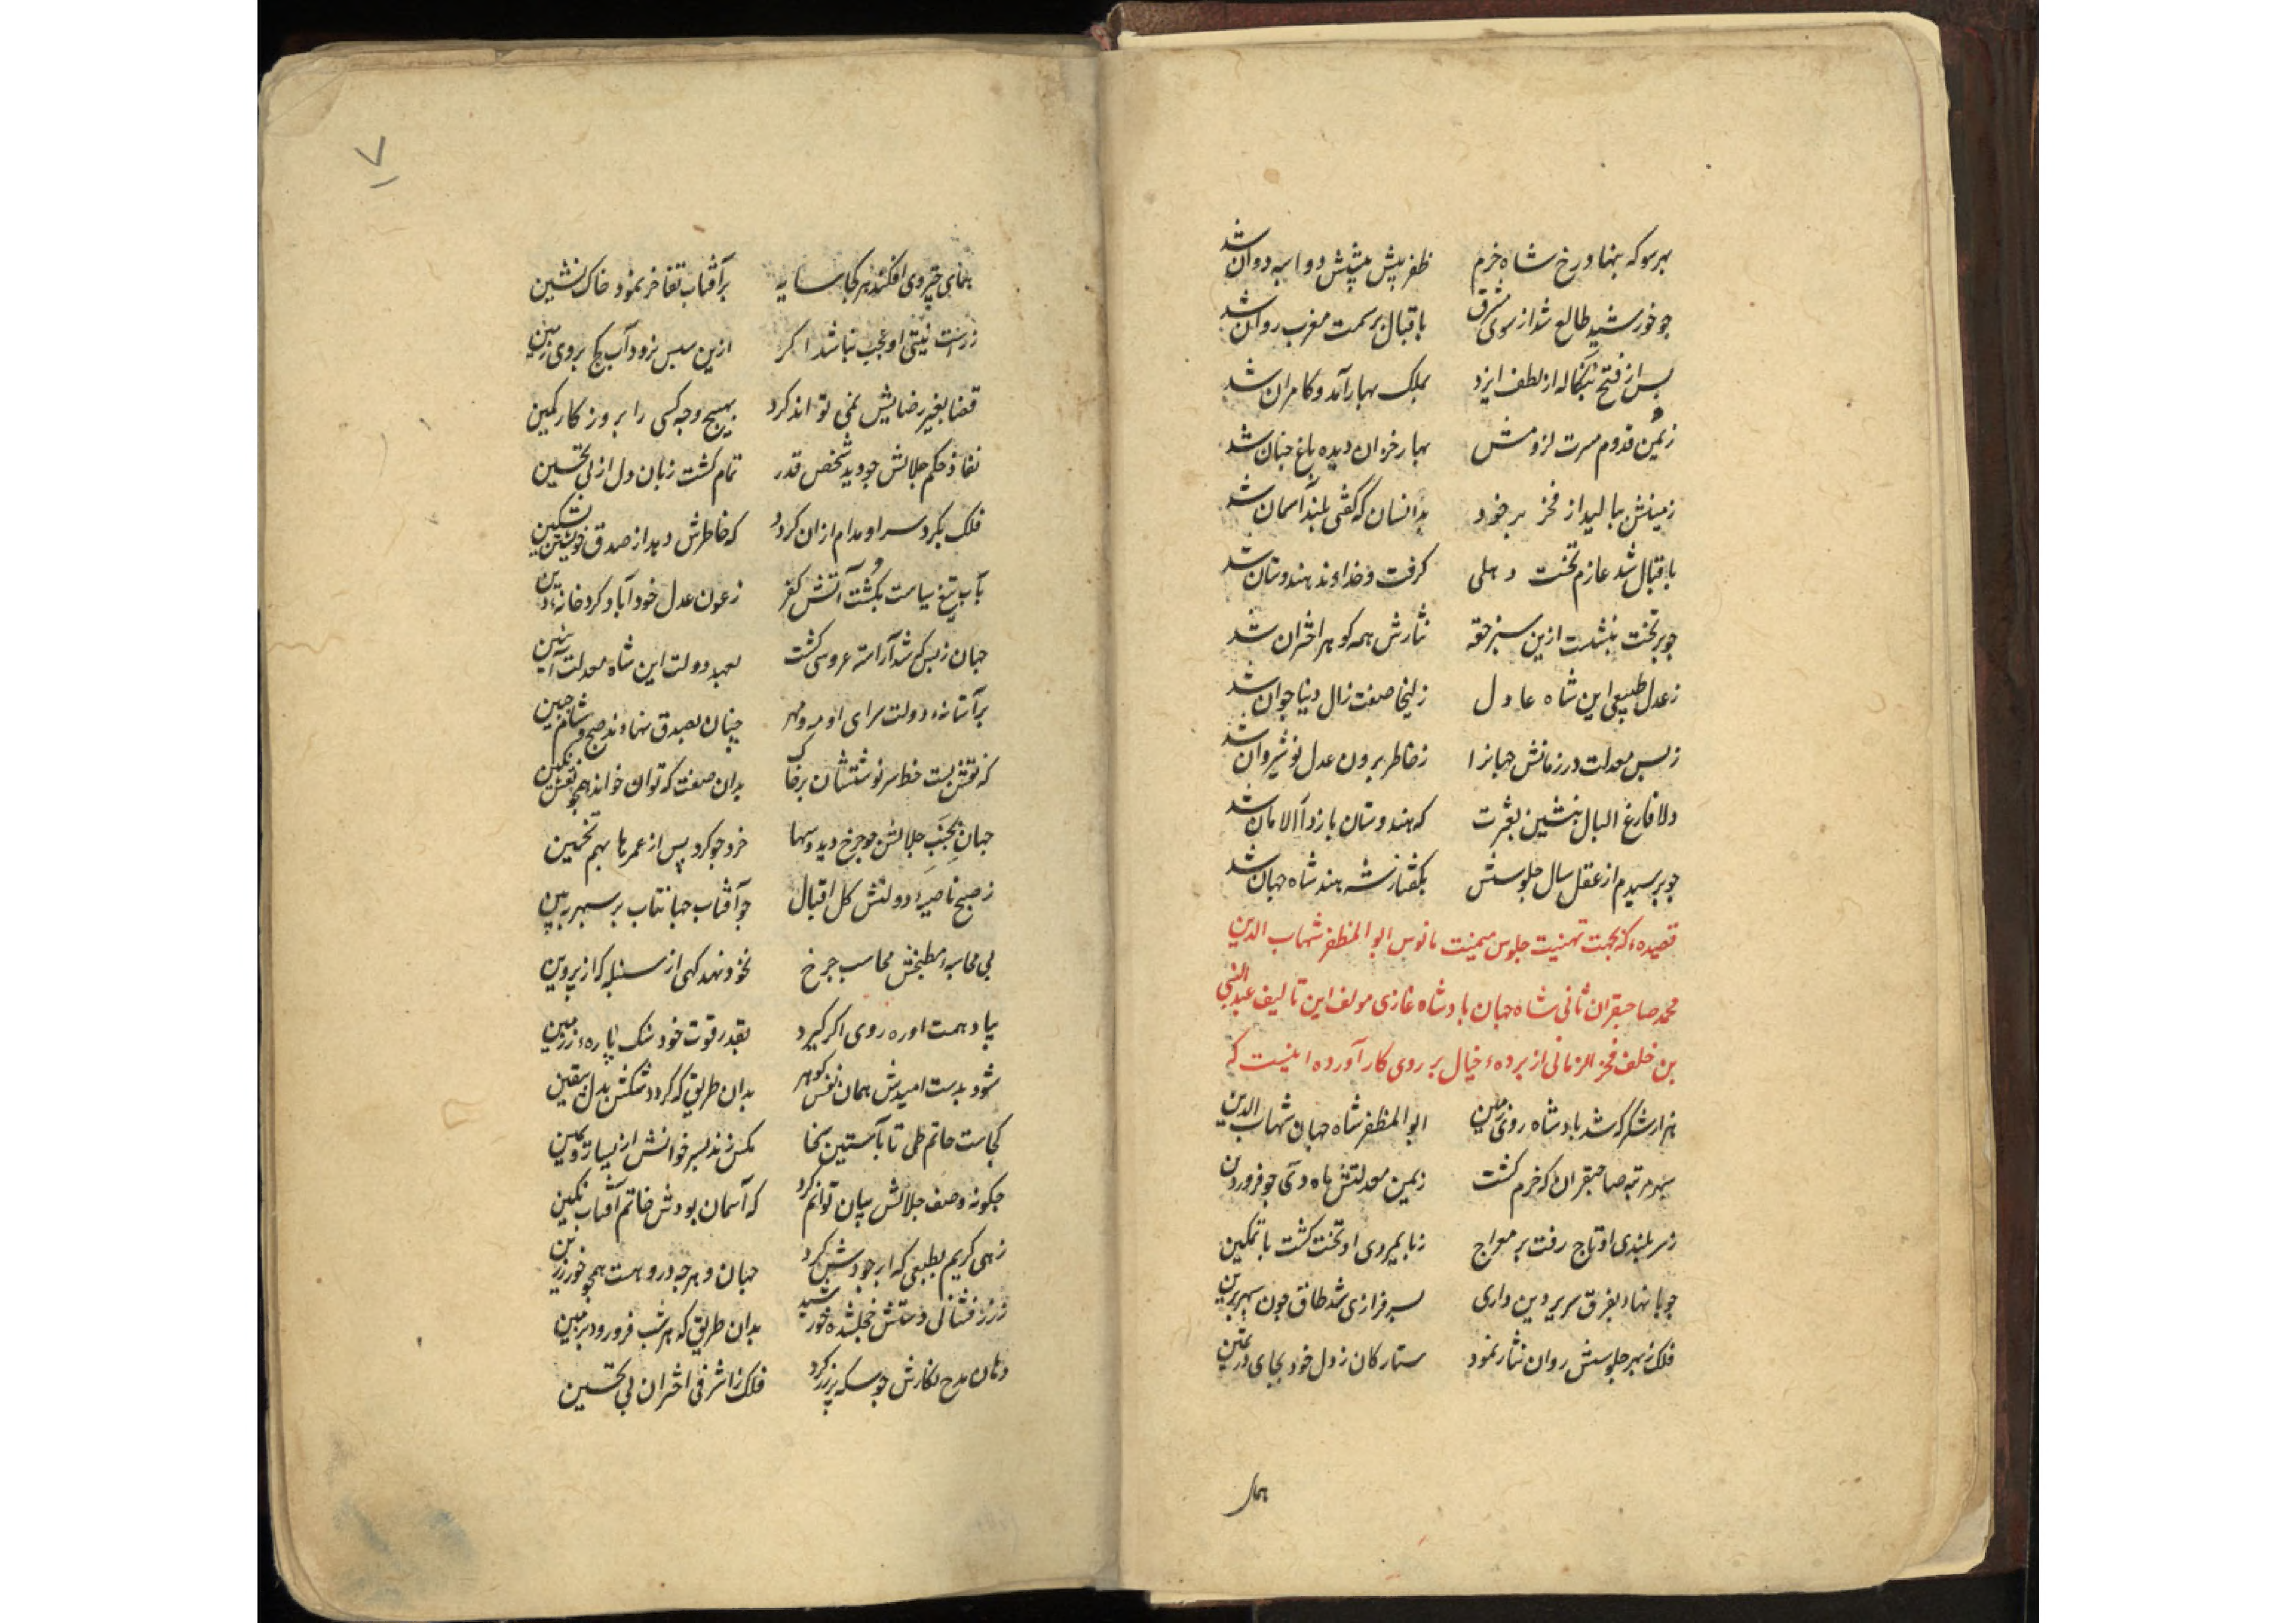 بهر سو که بنهاد رخ شاه خرم ظفر پیش پیشش دواسبه دوان شد
چو خورشید طالع شد از سوی مشرق باقبال بر سمت مغرب روان شد
پس از فتح بنکاله از لطف ایزد بملک بهار آمد و کامران شد
زیمن قدوم مسرت لزومش بهار خزان دیده باغ جنان شد
زمینش ببالید از فخر بر خود بدانسان که گفتی بلند آسمان شد
باقبال شد عازم تخت دهلی گرفت و خداوند هندوستان شد
چو بر تخت بنشست ازین سبز حقه نثارش همه کوهر اختران شد
زعدل طبیعی این شاه عادل زلیخا صفت زال دنیا جوان شد
زبس معدلت در زمانش جهانرا زخاطر برون عدل نوشیروان شد
دلا فارغ البال بنشین بعشرت که هندوستان باز دار الامان شد
چو پرسیدم از عقل سال جلوسش بگفتا زشه هند شاه جهان شد
قصیده که بجهت تهنیت جلوس میمنت مانوس ابو المظفر شهاب الدین
محمد صاحبقران ثانی شاه جهان بادشاه غازی مولف این تالیف عبد النبی
بن خلف فخر الزمانی از پرده خیال بر روی کار آورده اینست که
هزار شکر که شد بادشاه روی زمین ابو المظفر شاه جهان شهاب الدین
سپهر مرتبه صاحبقران که خرم گشت زیمن معدلتش ماه دی چو فروردین
زسربلندی او تاج رفت بر معراج زپایمردی او تخت گشت با تمکین
چو پا نهاد بفرق سریر دین داری بسرفرازی شد طاق چون سپهر برین
فلک زبهر جلوسش روان نثار نمود ستارکان زدل خود بجای در ثمین
همای
همای چتر وی افکند هر کجا سایه بر آفتاب تفاخر نمود خاک نشین
زراست نیتی او عجب نباشد اگر ازین سپس نرود آب کج بروی زمین
قضا بغیر رضایش نمی تواند کرد بهیچ وجه کسی را بروز کار کمین
نفاذ حکم جلالش چو دید شخص قدر تمام گشت زبان دل از پی تحسین
فلک بکرد سر او مدام ازان گردد که خاطرش دهد از صدق خویشتن تسکین
بآب تیغ سیاست بکشت آتش کفر زعون عدل خود آباد کرد خانه دین
جهان زبس که شد آراسته عروسی گشت بعهد دولت این شاه معدلت آیین
بر آستانه دولت سرای او مه و مهر چنان بصدق نهادند صبح و شام جبین
که نقش بست خط سرنوشتشان بر خاک بدان صفت که توان خواند همچو نقش نگین
جهان بجنب جلالش چو چرخ دید و سها خرد چو کرد پس از عمرها بهم تخمین
زصبح ناصیه دولتش کل اقبال چو آفتاب جهانتاب بر سپهر برین
پی محاسبه مطبخش محاسب چرخ نخود نهد کهی از سنبله که از پروین
بیاد همت او ره روی اگر گیرد بقدر قوت خود سنک پاره ز زمین
شود بدست امیدش همان نفس کوهر بدان طریق که گردد شکش بدل بیقین
کجاست حاتم طی تا بآستین سخا مکس زند بسر خوانش از یسار و یمین
چکونه وصف جلالش بیان توانم کرد که آسمان بودش خاتم آفتاب نگین
زهی کریم بطبعی که ابر جودش کرد جهان و هرچه دروهست همچو خور زرین
ززرفشانی دستش خجل شده خورشید بدان طریق که هر شب فرو رود بزمین
دهان مدح نکارش چو سکه پر زر کرد فلک زاشرفی اختران پی تحسین